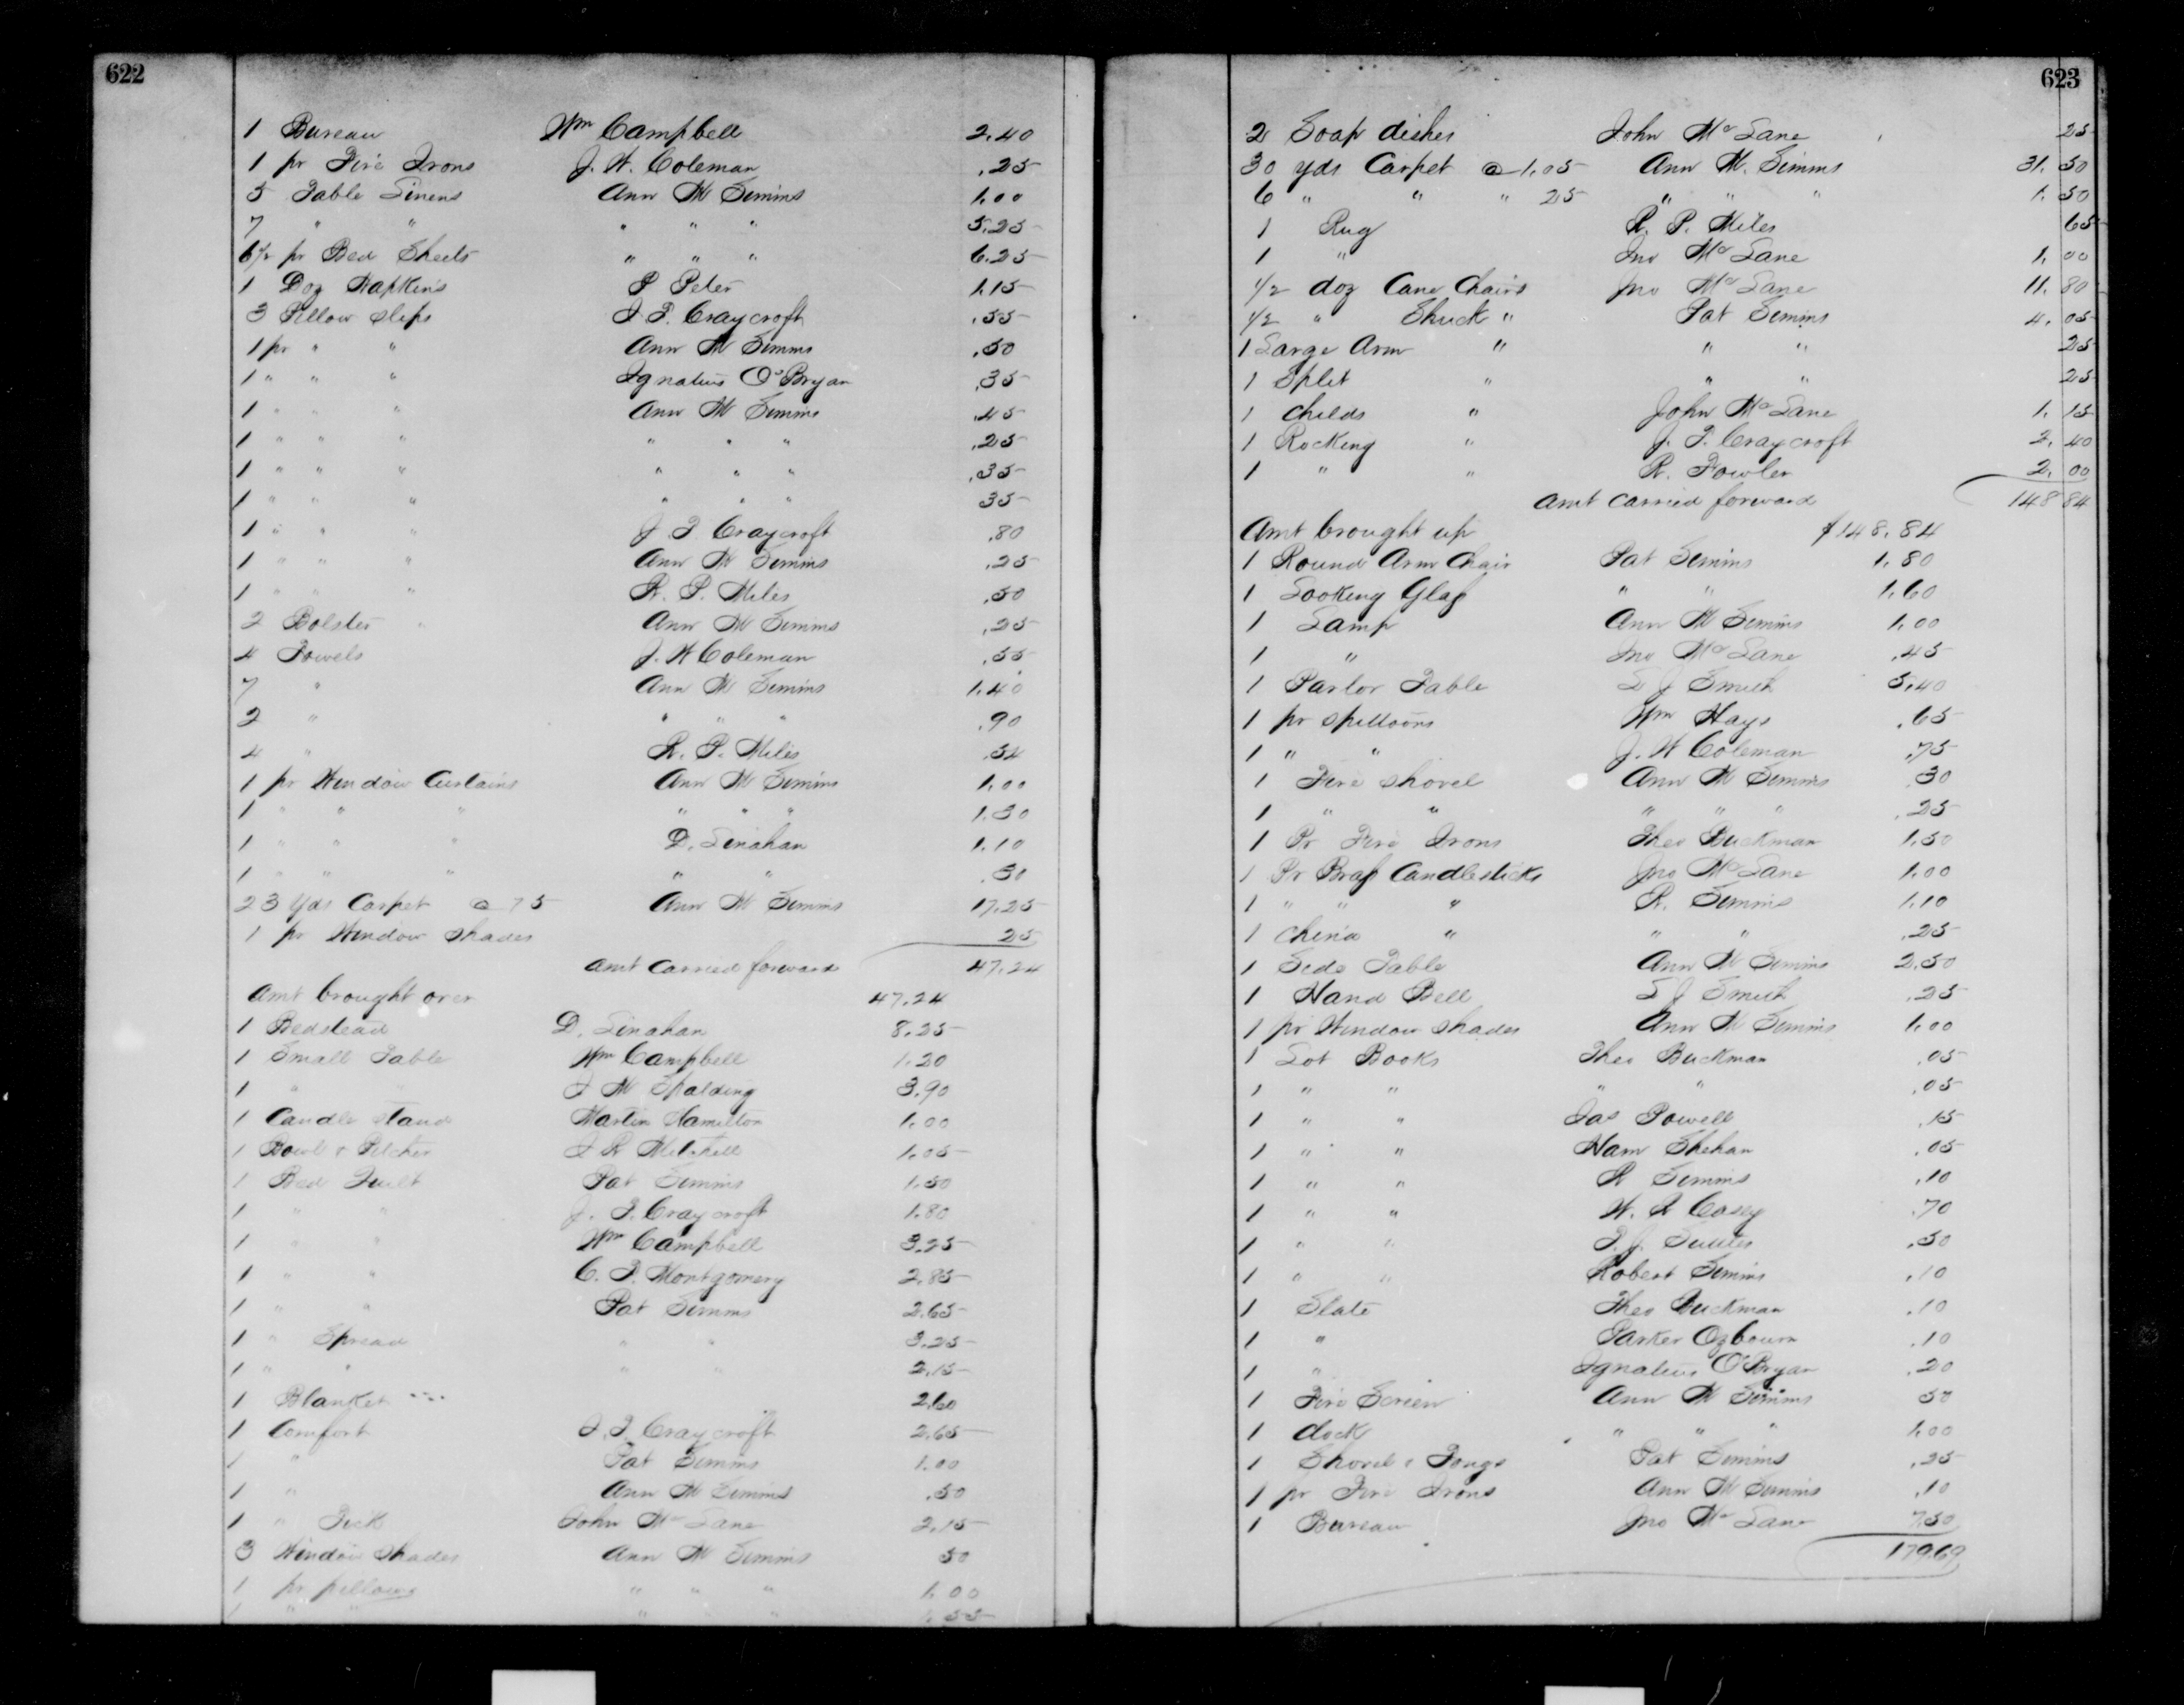 622
1 Bureau Wm Campbell 2.40
1 pr Fire Irons J. W. Coleman .25
5 Table Linens Ann M Simms 1.00
7 " " " " " 5.25
6 1/2 pr Bed Sheets " " " 6.25
1 Doz Napkins P Peter 1.15
3 Pillow slips J. T. Craycroft .55
1 pr " " Ann M Simms .50
1 " " " Ignatius O'Bryan .35
1 " " " Ann M Simms .45
1 " " " " " " .25
1 " " " " " " .35
1 " " " " " " 35
1 " " " J. T. Craycroft .80
1 " " " Ann M Simms .25
1 " " " R. P. Miles .50
2 Bolster " Ann M Simms .25
4 Towels J. W Coleman .55
7 " Ann M Simms 1.40
2 " " " " .90
4 " R. P. Miles .54
1 pr Window Curtains Ann M Simms 1.00
1 " " " " " " 1.30
1 " " " D. Linahan 1.10
1 " " " " " .30
23 Yds Carpet @ 75 Ann M Simms 17.25
1 pr Window Shades 25
Amt carried forward 47.24
Amt brought over 47.24
1 Bedstead D. Linahan 8.25
1 Small Table Wm Campbell 1.20
1 " " J M Spalding 3.90
1 Candle stand Martin Hamilton 1.00
1 Bowl & Pitcher J R Mitchell 1.05
1 Bed Quilt Pat Simms 1.50
1 " " J. T. Craycroft 1.80
1 " " Wm Campbell 3.25
1 " " C. T. Montgomery 2.85
1 " " Pat Simms 2.65
1 " Spread " " 3.25
1 " " " " 2.15
1 Blanket 2.60
1 Comfort J. T. Craycroft 2.65
1 " Pat Simms 1.00
1 " Ann M Simms .50
1 " Tick John McLane 2.15
3 Window Shades Ann M Simms 50
1 pr pillows " " " 1.00
1 " " " " " 1.55
623
2 Soap dishes John McLane 25
30 yds Carpet @ 1.05 Ann M. Simms 31.50
6 " " " 25 " " " 1.50
1 Rug R. P. Miles 65
1 " Jno McLane 1.00
1/2 doz Cane Chairs Jno McLane 11.80
1/2 " Shuck " Pat Simms 4.05
1 Large Arm " " " 25
1 Split " " " 25
1 Childs " John McLane 1.15
1 Rocking " J. T. Craycroft 2.40
1 " " R. Fowler 2.00
Amt carried forward 148 84
Amt brought up $148.84
1 Round Arm Chair Pat Simms 1.80
1 Looking Glass " " 1.60
1 Lamp Ann M Simms 1.00
1 " Jno McLane .45
1 Parlor Table S J Smith 5.40
1 pr spittoons Wm Hays .65
1 " " J. W Coleman .75
1 Fire shovel Ann M Simms 30
1 " " " " " .25
1 Pr Fire Irons Theo Buckman 1.50
1 Pr Brass Candlesticks Jno McLane 1.00
1 " " " R. Simms 1.10
1 China " " " .25
1 Side Table Ann M Simms 2.50
1 Hand Bell S J Smith .25
1 pr Window Shades Ann M Simms 1.00
1 Lot Books Theo Buckman .05
1 " " " " .05
1 " " Jas Powell .15
1 " " Nam Shehan .05
1 " " R Simms .10
1 " " W. R Casey .70
1 " " T. J. .50
1 " " Robert Simms .10
1 Slate Theo Buckman .10
1 " Parker Ozbourn .10
1 " Ignatius O'Bryan .20
1 Fire Screen Ann M Simms 50
1 clock " " " 1.00
1 Shovel & Tongs Pat Simms .25
1 pr Fire Irons Ann M Simms .10
1 Bureau Jno McLane 7.50
179.69